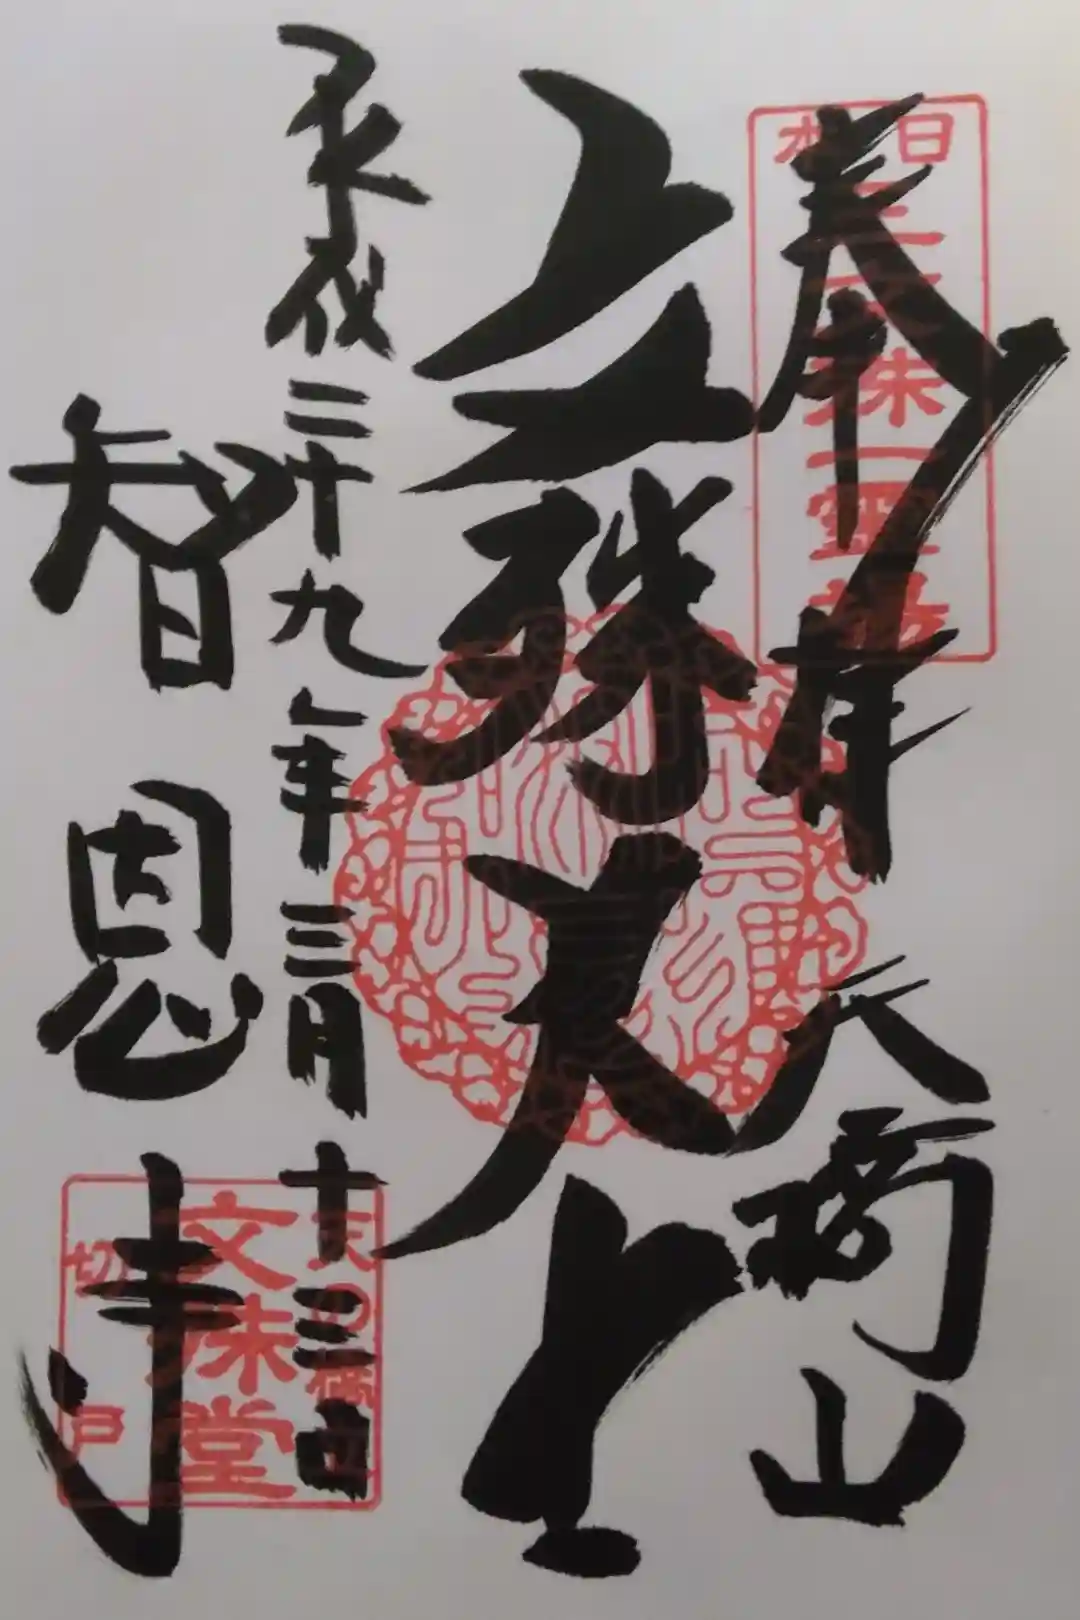 奉拝 天橋山
日本
三文殊一霊場
文殊大士
平成二十九年三月十三日
智恩寺
天の橋立
文殊堂
切戸